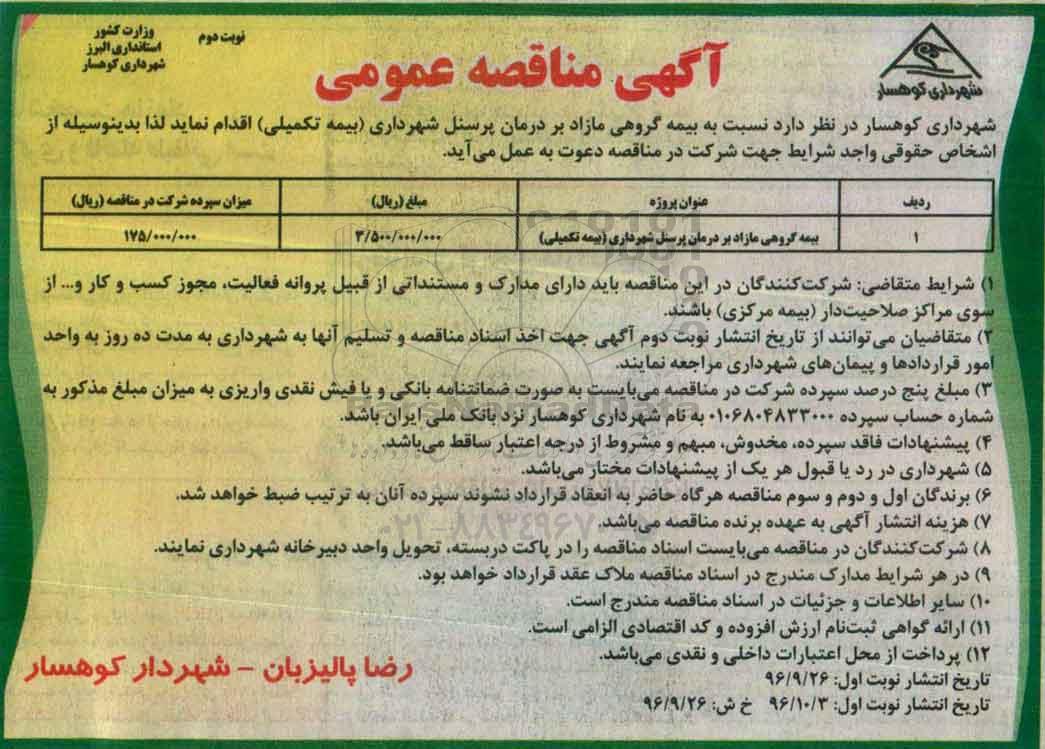 وزارت کشور
استانداری البرز
شهرداری کوهسار
نوبت دوم
آگهی مناقصه عمومی
شهرداری کوهسار
شهرداری کوهسار در نظر دارد نسبت به بیمه گروهی مازاد بر درمان پرسنل شهرداری (بیمه تکمیلی) اقدام نماید لذا بدینوسیله از
اشخاص حقوقی واجد شرایط جهت شرکت در مناقصه دعوت به عمل می‌آید.
ردیف عنوان پروژه مبلغ (ریال) میزان سپرده شرکت در مناقصه (ریال)
۱ بیمه گروهی مازاد بر درمان پرسنل شهرداری (بیمه تکمیلی) ۳/۵۰۰/۰۰۰/۰۰۰ ۱۷۵/۰۰۰/۰۰۰
۱) شرایط متقاضی: شرکت‌کنندگان در این مناقصه باید دارای مدارک و مستنداتی از قبیل پروانه فعالیت، مجوز کسب و کار و... از
سوی مراکز صلاحیت‌دار (بیمه مرکزی) باشند.
۲) متقاضیان می‌توانند از تاریخ انتشار نوبت دوم آگهی جهت اخذ اسناد مناقصه و تسلیم آنها به شهرداری به مدت ده روز به واحد
امور قراردادها و پیمان‌های شهرداری مراجعه نمایند.
۳) مبلغ پنج درصد سپرده شرکت در مناقصه می‌بایست به صورت ضمانتنامه بانکی و یا فیش نقدی واریزی به میزان مبلغ مذکور به
شماره حساب سپرده ۰۱۰۶۸۰۴۸۳۳۰۰۰ به نام شهرداری کوهسار نزد بانک ملی ایران باشد.
۴) پیشنهادات فاقد سپرده، مخدوش، مبهم و مشروط از درجه اعتبار ساقط می‌باشد.
۵) شهرداری در رد یا قبول هر یک از پیشنهادات مختار می‌باشد.
۶) برندگان اول و دوم و سوم مناقصه هرگاه حاضر به انعقاد قرارداد نشوند سپرده آنان به ترتیب ضبط خواهد شد.
۷) هزینه انتشار آگهی به عهده برنده مناقصه می‌باشد.
۸) شرکت‌کنندگان در مناقصه می‌بایست اسناد مناقصه را در پاکت دربسته، تحویل واحد دبیرخانه شهرداری نمایند.
۹) در هر شرایط مدارک مندرج در اسناد مناقصه ملاک عقد قرارداد خواهد بود.
۱۰) سایر اطلاعات و جزئیات در اسناد مناقصه مندرج است.
۱۱) ارائه گواهی ثبت‌نام ارزش افزوده و کد اقتصادی الزامی است.
۱۲) پرداخت از محل اعتبارات داخلی و نقدی می‌باشد.
تاریخ انتشار نوبت اول: ۹۶/۹/۲۶
تاریخ انتشار نوبت اول: ۹۶/۱۰/۳ خ ش: ۹۶/۹/۲۶
رضا پالیزبان - شهردار کوهسار
۰۲۱-۸۸۳۴۹۶۷۰